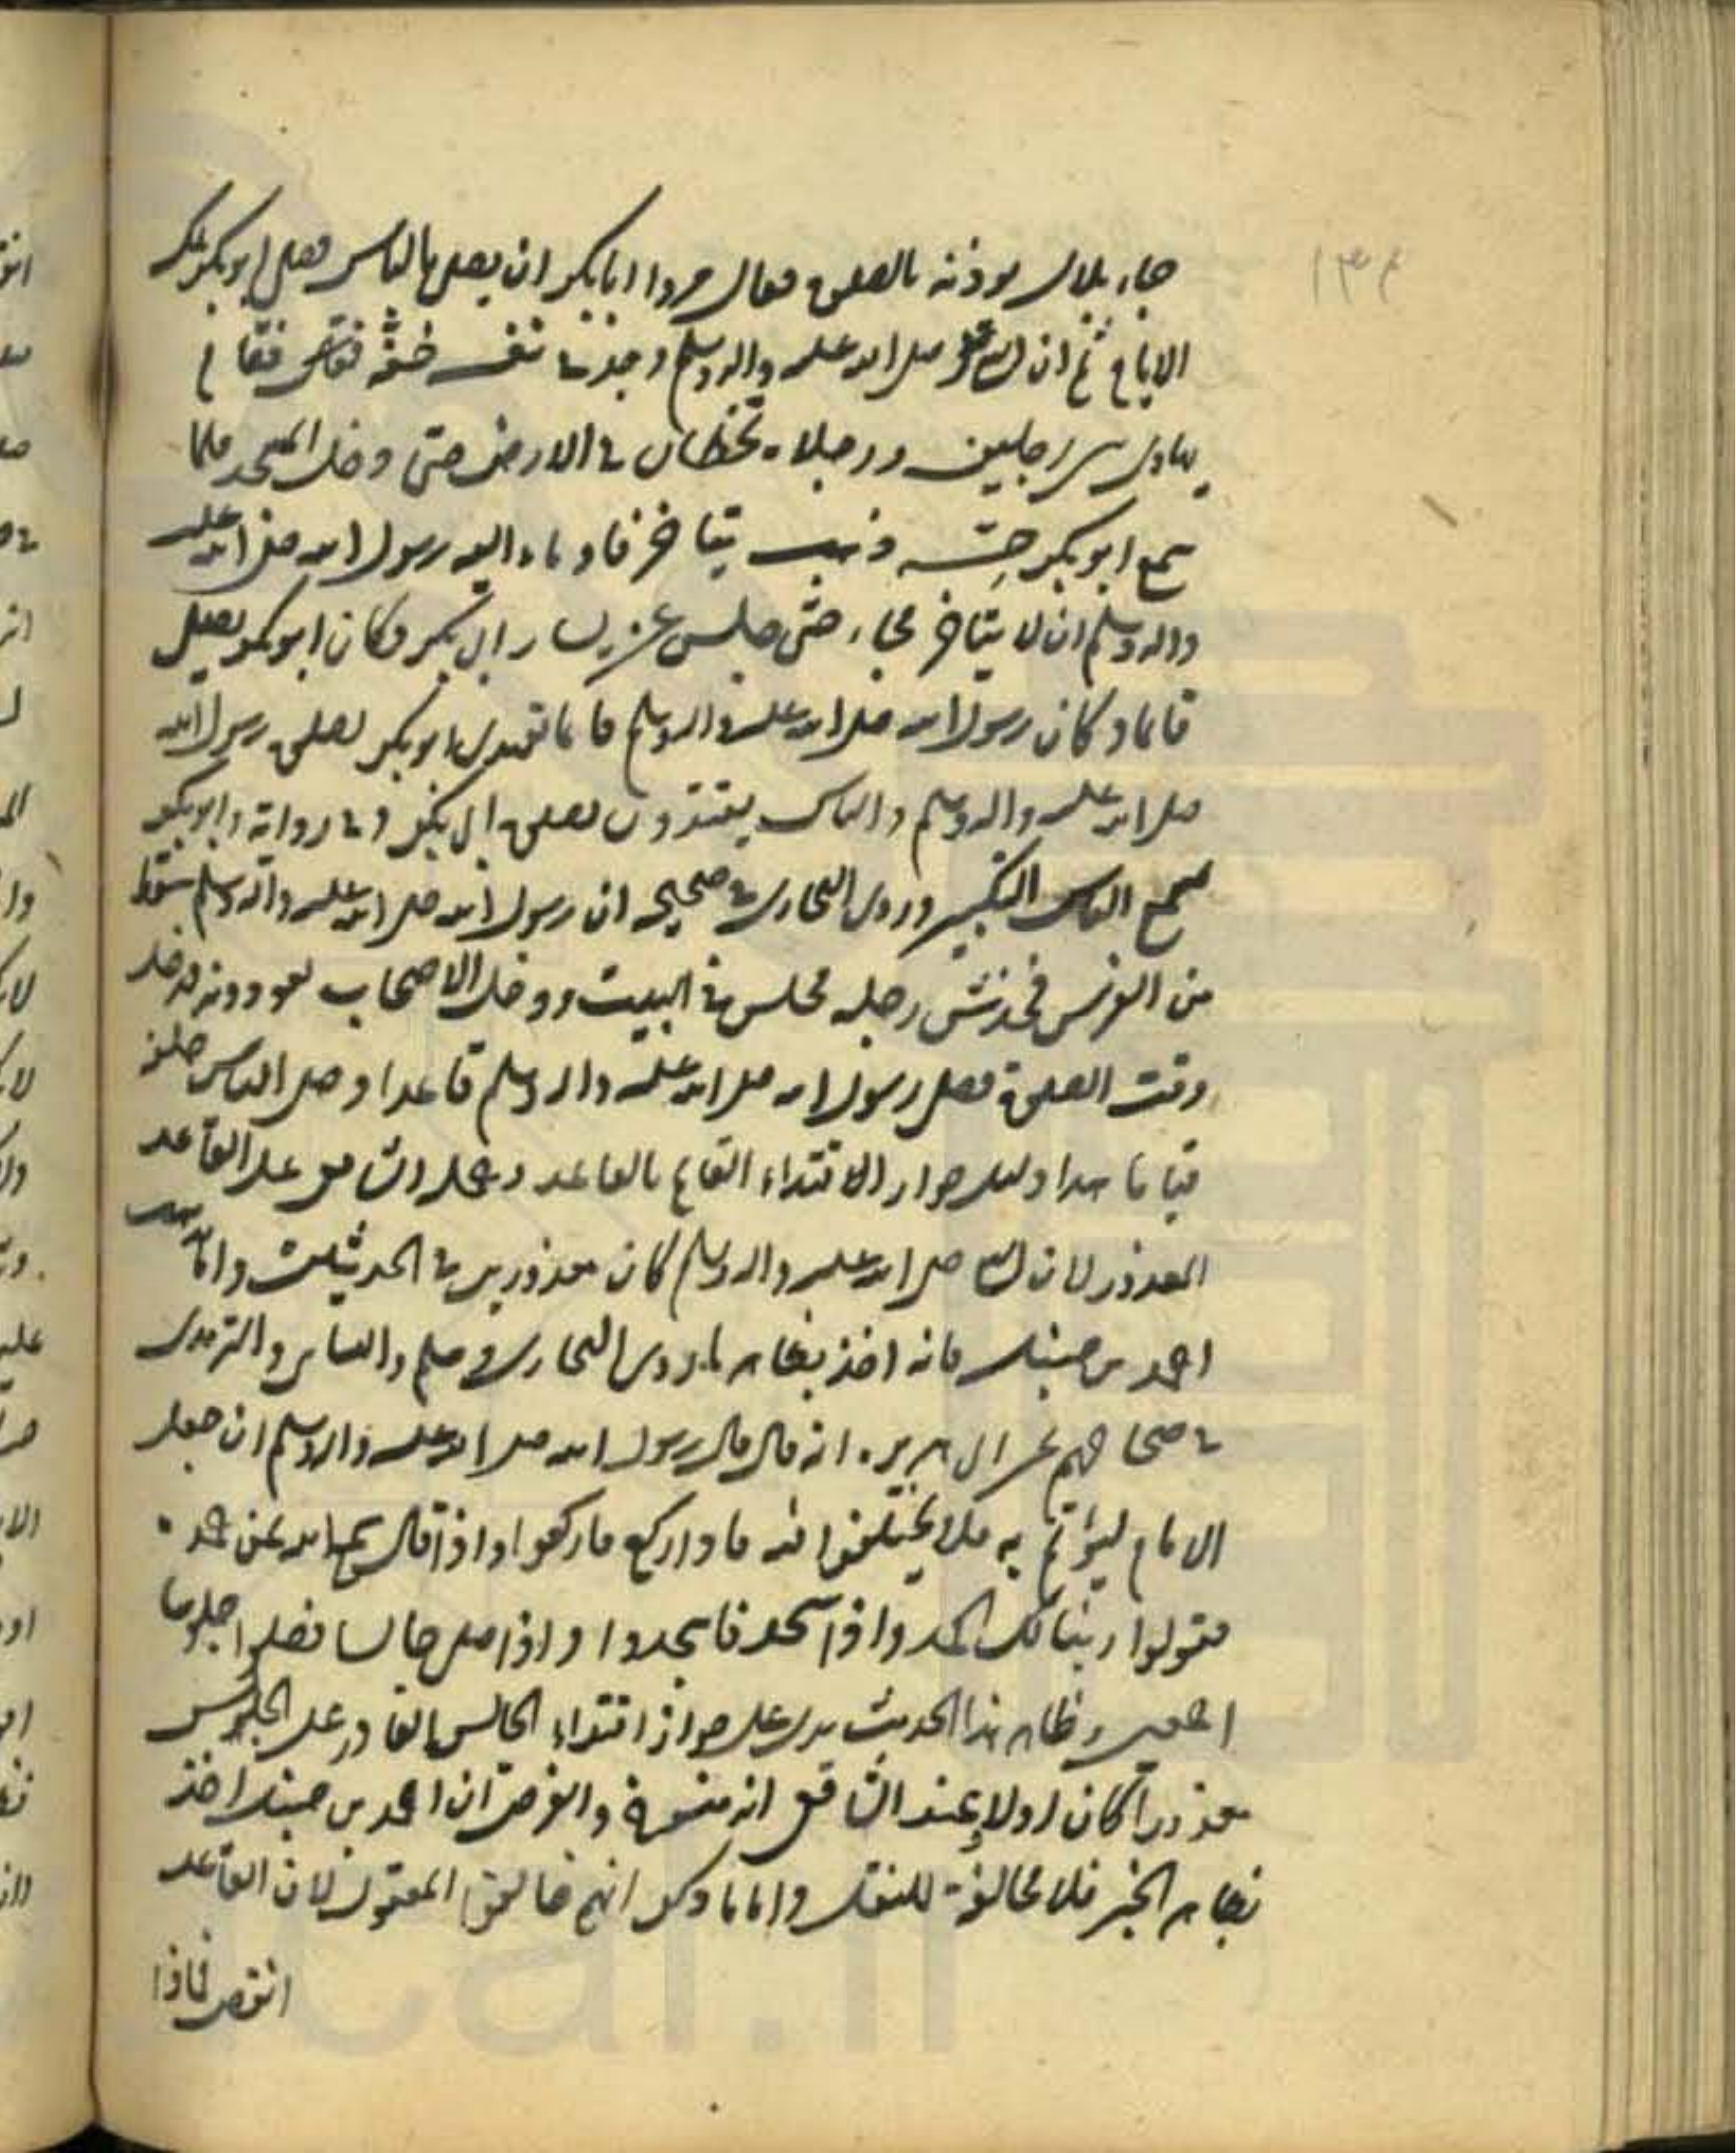 ۱۳۴
جاء بلال يوذنه بالصلوة فقال مروا ابابكر ان يصلي بالناس فصلى ابوبكر تلك
الايام ثم ان النبي صلى الله عليه واله وسلم وجد في نفسه خفة فقام
يهادى بين رجلين ورجلاه تخطان في الارض حتى دخل المسجد فلما
سمع ابوبكر حسه ذهب يتاخر فاوماء اليه رسول الله صلى الله عليه
واله وسلم ان لا يتاخر فجاء حتى جلس عن يسار ابي بكر وكان ابوبكر يصلي
قائما وكان رسول الله صلى الله عليه واله وسلم قاعدا يقتدي ابوبكر بصلوة رسول الله
صلى الله عليه واله وسلم والناس يقتدون بصلوة ابي بكر وفي رواية وابوبكر
يسمع الناس التكبير وروى البخاري في صحيحه ان رسول الله صلى الله عليه واله وسلم سقط
من الفرس فخدش رجله فجلس في البيت ودخل الاصحاب يعودونه فدخل
وقت الصلوة فصلى رسول الله صلى الله عليه واله وسلم قاعدا وصلى الناس خلفه
قياما هذا دليل جواز الاقتداء القائم بالقاعد وحمله الشافعي على القاعد
المعذور لان النبي صلى الله عليه واله وسلم كان معذورا في الحديثين واما مذهب
احمد بن حنبل فانه اخذ بظاهر ما روى البخاري ومسلم والنسائي والترمذي
في صحاحهم عن ابي هريرة انه قال قال رسول الله صلى الله عليه واله وسلم ان جعل
الامام ليؤتم به فلا تختلفوا فيه فاذا ركع فاركعوا واذا قال سمع الله لمن حمده
فقولوا ربنا لك الحمد واذا سجد فاسجدوا واذا صلى جالسا فصلوا جلوسا
اجمعين وظاهر هذا الحديث يدل على جواز اقتداء الجالس بالقادر على الجلوس
معذورا كان اولا وعند الشافعي انه منسوخ والغرض ان احمد بن حنبل اخذ
بظاهر الخبر فلا مخالفة للنقل واما ما ذكر انهم خالفوا المعقول لان القاعد
انقص فاذا